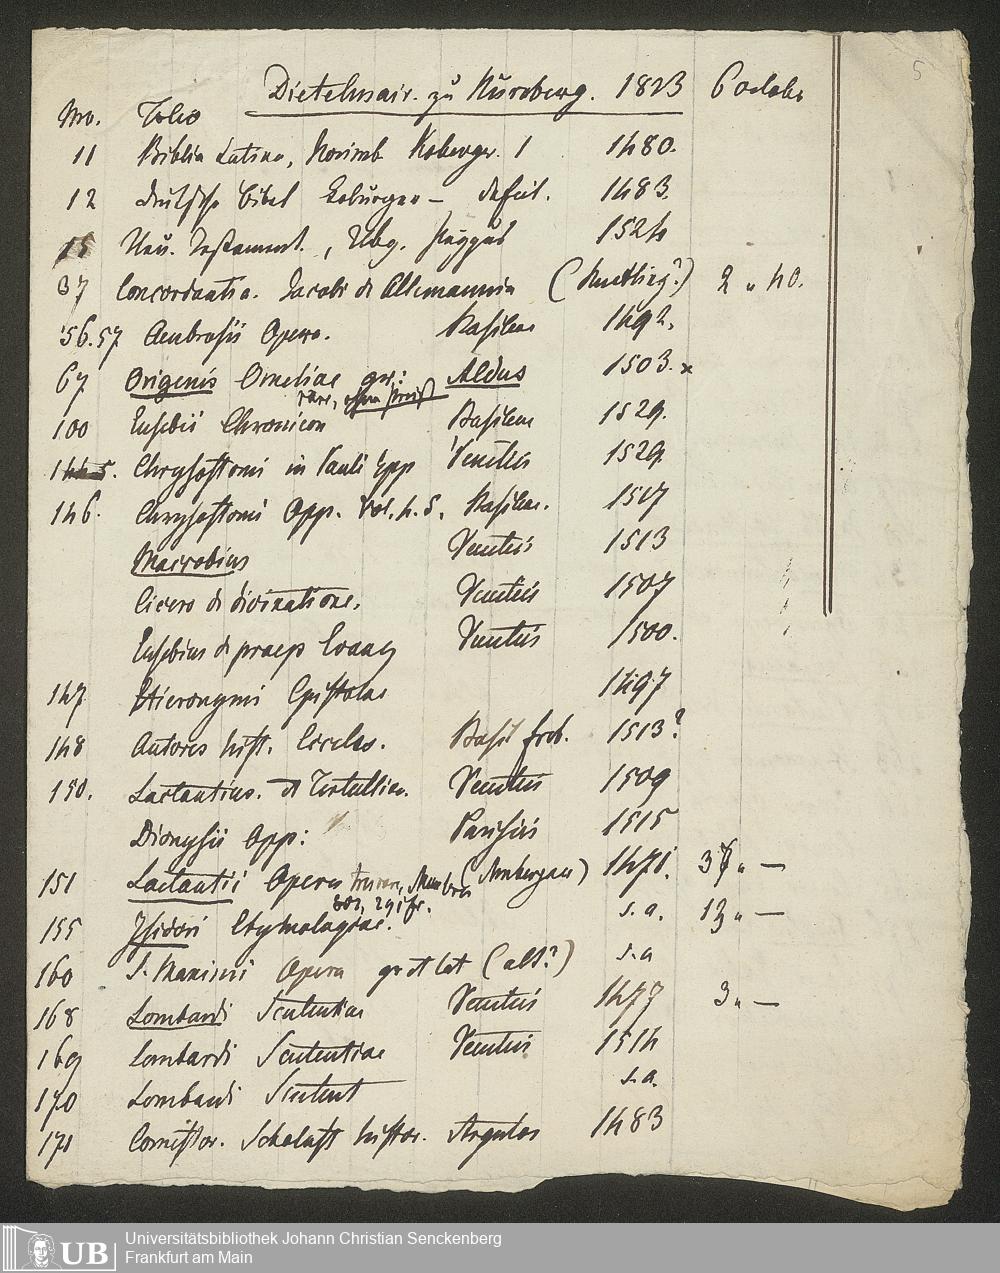 5
Dietelmair. zu Nürnberg. 1823 6 Octobr
No. Folio
11 Biblia Latina, Norimb Koberger. 1 1480.
12 deutsche Bibel Koburger – defect. 1483.
15 Neu. Testament., 1524
37 Concordantia. Jacobi de Allemannia (Reutling?) 2 „ 40.
56.57 Ambrosii Opera. Basileae 1492.
67 Origenis Omeliae gr: Aldus 1503. x
rare, ohne Preiß
100 Eusebii Chronicon Basileae 1529.
Chrysostomi in Pauli Epp Venetiis 1529
146. Chrysostomi Opp. Vol. 4. 5. Basileae. 1517
Macrobius Venetiis 1513
Cicero de divinatione. Venetiis 1507
Eusebius de praep Evang Venetiis 1500.
147 Hieronymi Epistolae 1497
148 Autores hist. Eccles. Basil frob. 1513?
150. Lactantius. et Tertullian. Venetiis 1509
Dionysii Opp: Parisiis 1515
151 Lactantii Opera 1471. „ —
155 Isidori Etymologiae. s.a. 13 „ —
160 S. Maximi Opera gr et lat (alt?) s.a
168 Lombardi Sententiae Venetiis 1477 3 „ —
169 Lombardi Sententiae Venetiis 1514
170 Lombardi Sentent s.a.
171 Comestor. Scholast histor. Argentor 1483
UB Universitätsbibliothek Johann Christian Senckenberg
Frankfurt am Main